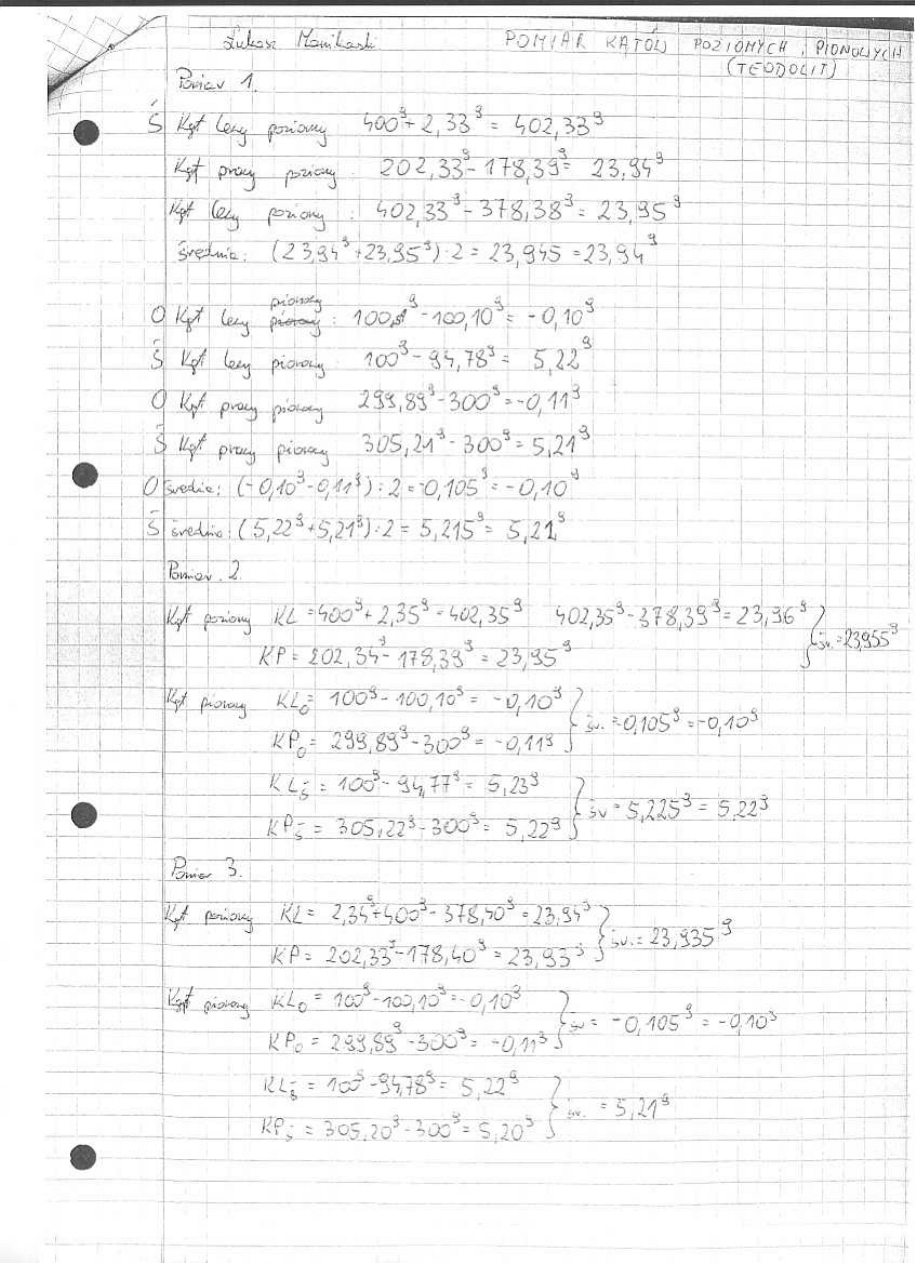 Łukasz POMIAR KĄTÓW POZIOMYCH, PIONOWYCH
(TEODOLIT)
Pomiar 1.
Ś Kąt lewy poziomy 400ᵍ + 2,33ᵍ = 402,33ᵍ
Kąt prawy poziomy: 202,33ᵍ - 178,39ᵍ = 23,94ᵍ
Kąt lewy poziomy: 402,33ᵍ - 378,38ᵍ = 23,95ᵍ
średnia: (23,94ᵍ + 23,95ᵍ) : 2 = 23,945 = 23,94ᵍ
pionowy
O Kąt lewy : 100ᵍ - 100,10ᵍ = -0,10ᵍ
Ś Kąt lewy pionowy: 100ᵍ - 94,78ᵍ = 5,22ᵍ
O Kąt prawy pionowy 299,89ᵍ - 300ᵍ = -0,11ᵍ
Ś Kąt prawy pionowy 305,21ᵍ - 300ᵍ = 5,21ᵍ
O średnia: (-0,10ᵍ - 0,11ᵍ) : 2 = -0,105ᵍ = -0,10ᵍ
Ś średnia: (5,22ᵍ + 5,21ᵍ) : 2 = 5,215ᵍ = 5,21ᵍ
Pomiar 2.
Kąt poziomy KL = 400ᵍ + 2,35ᵍ = 402,35ᵍ 402,35ᵍ - 378,39ᵍ = 23,96ᵍ
KP = 202,34ᵍ - 178,39ᵍ = 23,95ᵍ } śr. = 23,955ᵍ
Kąt pionowy KL₀ = 100ᵍ - 100,10ᵍ = -0,10ᵍ
KP₀ = 299,89ᵍ - 300ᵍ = -0,11ᵍ } śr. = -0,105ᵍ = -0,10ᵍ
KLś = 100ᵍ - 94,77ᵍ = 5,23ᵍ
KPś = 305,22ᵍ - 300ᵍ = 5,22ᵍ } śr = 5,225ᵍ = 5,22ᵍ
Pomiar 3.
Kąt poziomy KL = 2,34ᵍ + 400ᵍ - 378,40ᵍ = 23,94ᵍ
KP = 202,33ᵍ - 178,40ᵍ = 23,93ᵍ } śr. = 23,935ᵍ
Kąt pionowy KL₀ = 100ᵍ - 100,10ᵍ = -0,10ᵍ
KP₀ = 299,89ᵍ - 300ᵍ = -0,11ᵍ } śr = -0,105ᵍ = -0,10ᵍ
KLś = 100ᵍ - 94,78ᵍ = 5,22ᵍ
KPś = 305,20ᵍ - 300ᵍ = 5,20ᵍ } śr. = 5,21ᵍ